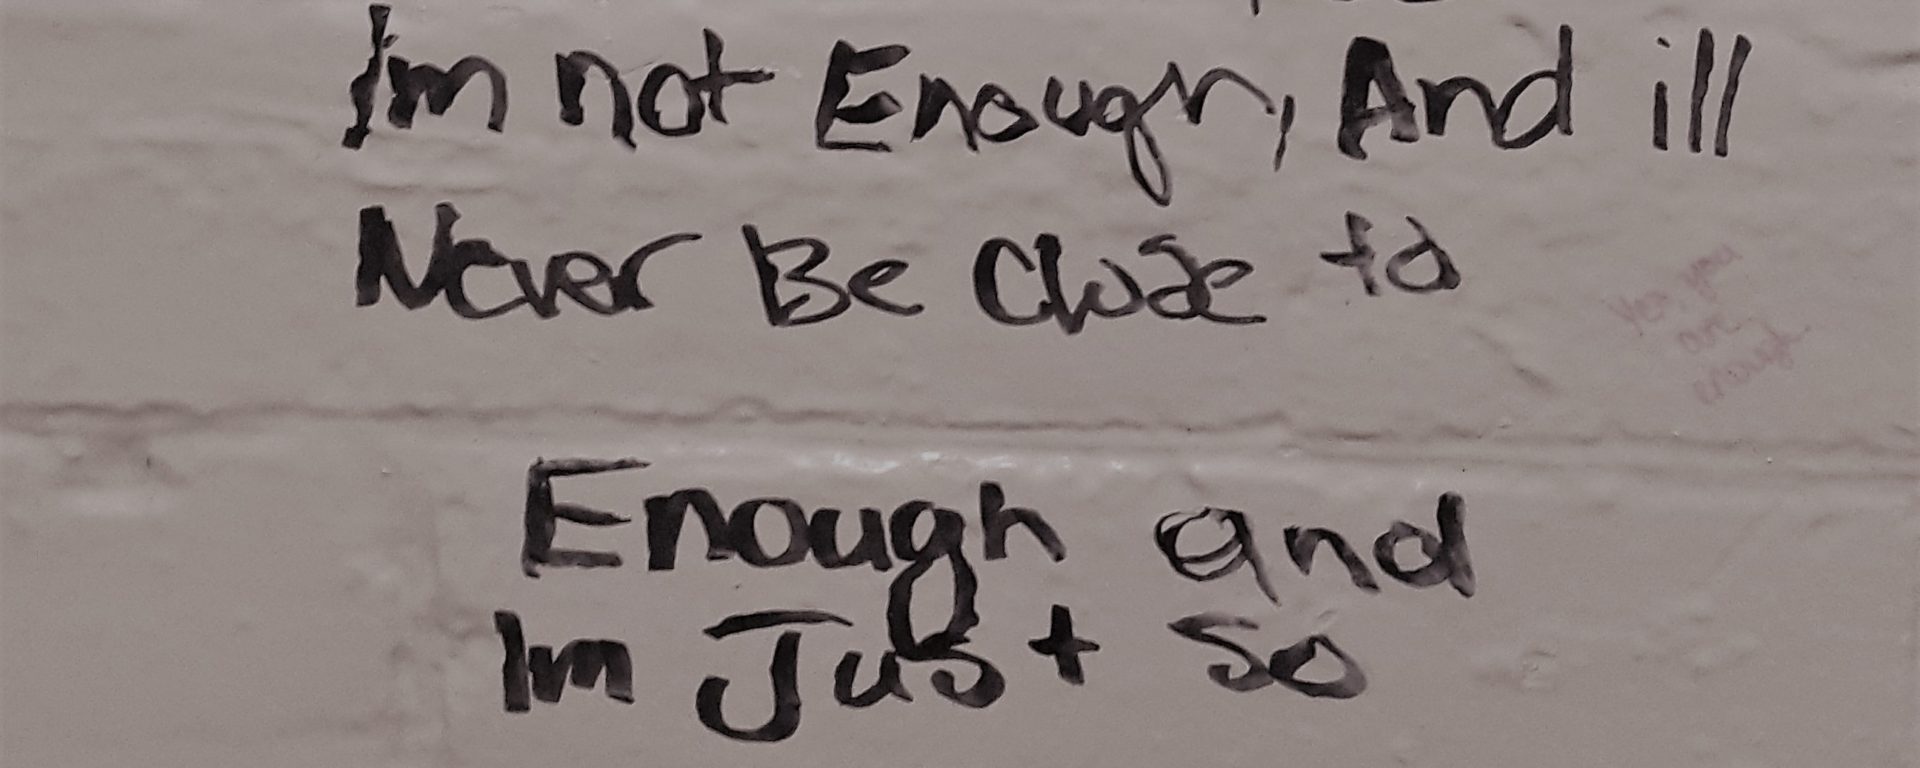 Im not Enough, And ill
Never Be Close to
Yes, you
are
enough
Enough and
Im Just So